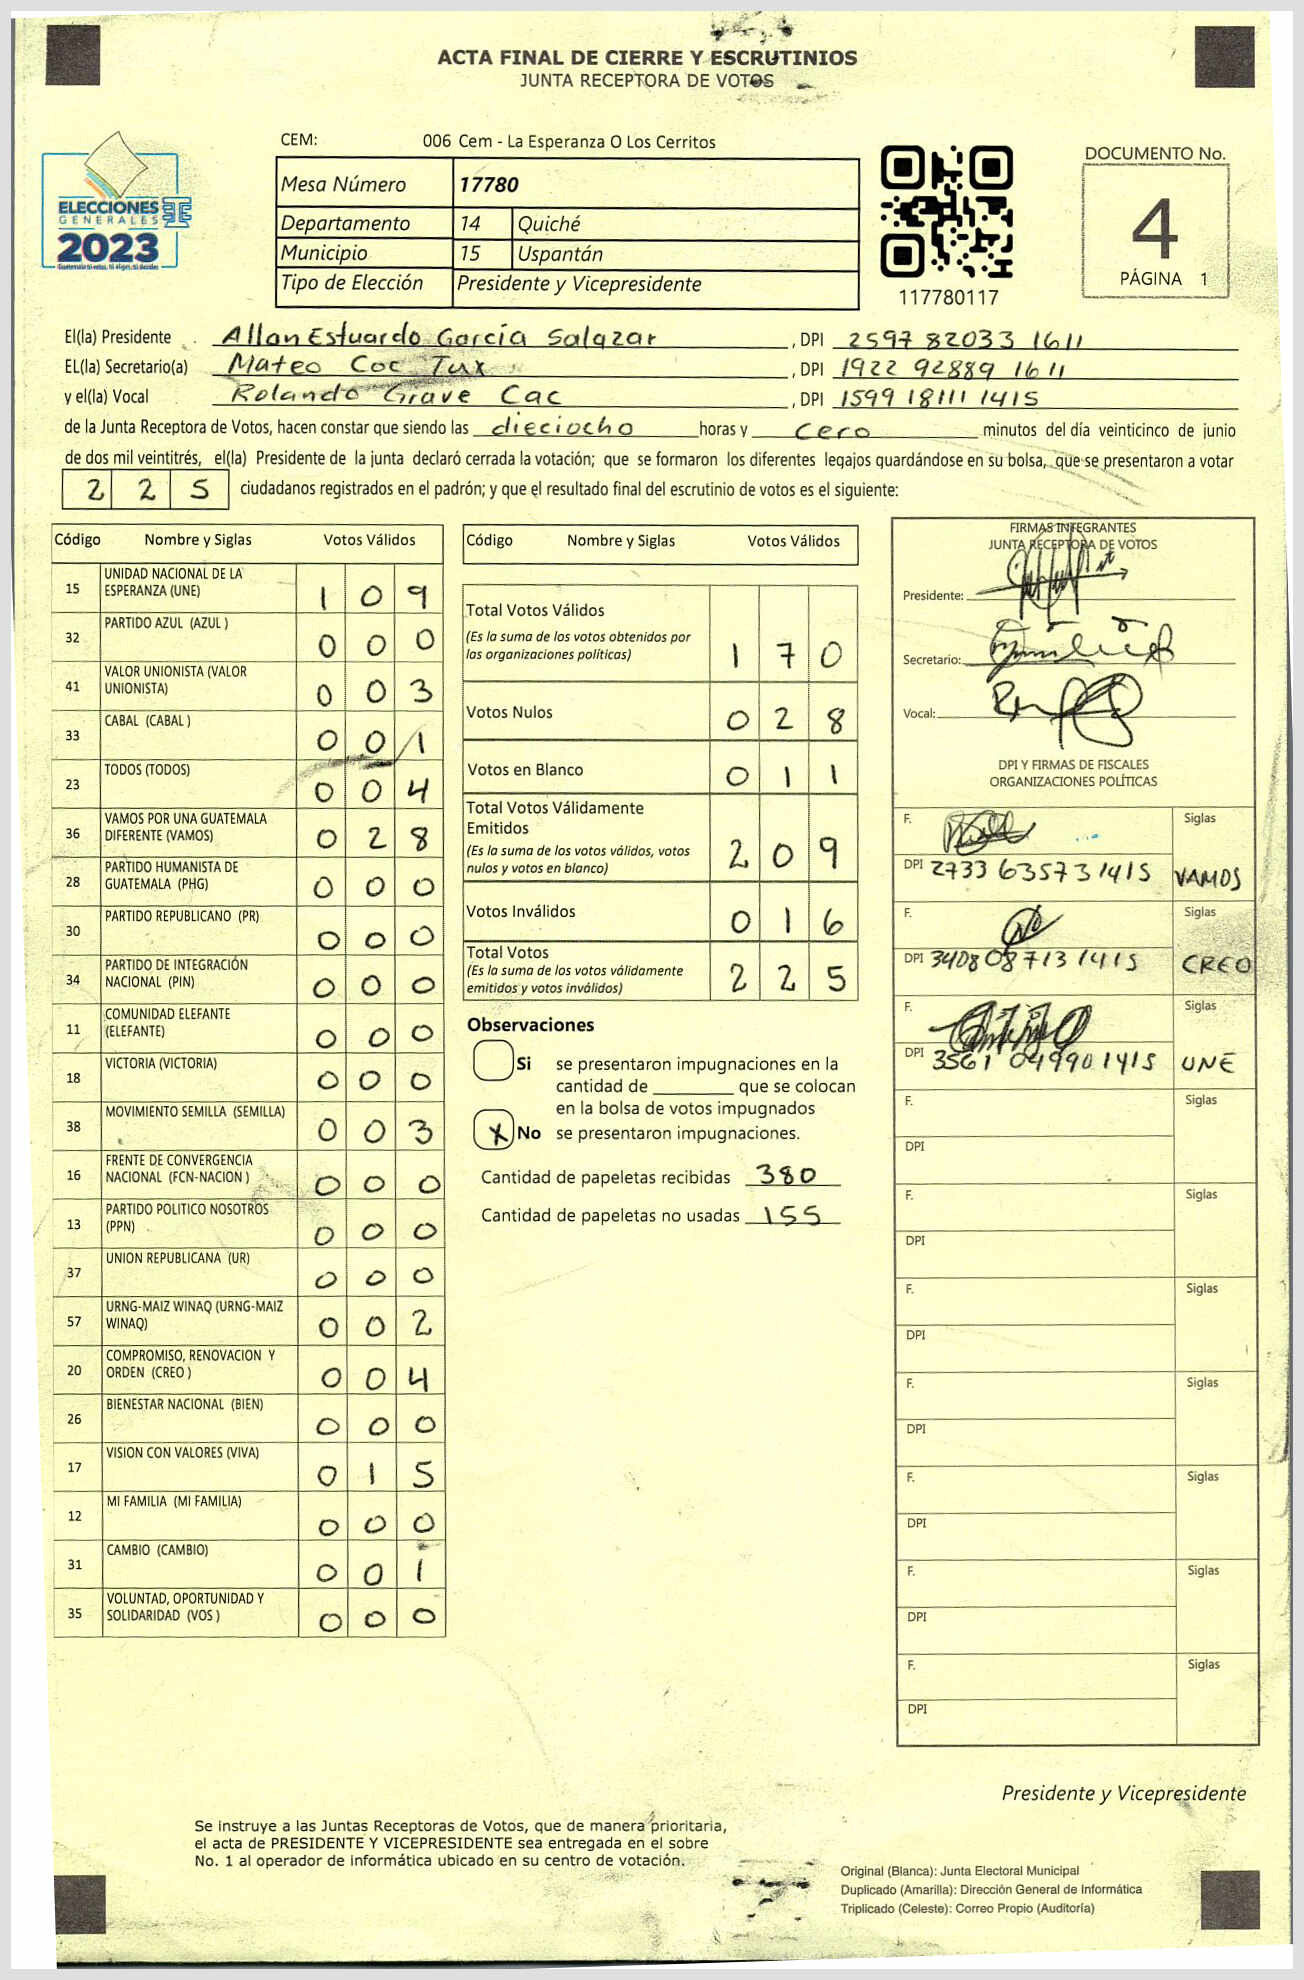 ACTA FINAL DE CIERRE Y ESCRUTINIOS
JUNTA RECEPTORA DE VOTOS
CEM: 006 Cem - La Esperanza O Los Cerritos
ELECCIONES
GENERALES
2023
TSE
Mesa Número 17780
Departamento 14 Quiché
Municipio 15 Uspantán
Tipo de Elección Presidente y Vicepresidente
117780117
DOCUMENTO No.
4
PÁGINA 1
El(la) Presidente Allan Estuardo García Salazar, DPI 2597 82033 1611
EL(la) Secretario(a) Mateo Coc Tux, DPI 1922 92889 1611
y el(la) Vocal Rolando Grave Cac, DPI 1599 18111 1415
de la Junta Receptora de Votos, hacen constar que siendo las dieciocho horas y cero minutos del día veinticinco de junio
de dos mil veintitrés, el(la) Presidente de la junta declaró cerrada la votación; que se formaron los diferentes legajos guardándose en su bolsa, que se presentaron a votar
2 2 5 ciudadanos registrados en el padrón; y que el resultado final del escrutinio de votos es el siguiente:
Código Nombre y Siglas Votos Válidos
15 UNIDAD NACIONAL DE LA
ESPERANZA (UNE) 1 0 9
32 PARTIDO AZUL (AZUL ) 0 0 0
41 VALOR UNIONISTA (VALOR
UNIONISTA) 0 0 3
33 CABAL (CABAL ) 0 0 1
23 TODOS (TODOS) 0 0 4
36 VAMOS POR UNA GUATEMALA
DIFERENTE (VAMOS) 0 2 8
28 PARTIDO HUMANISTA DE
GUATEMALA (PHG) 0 0 0
30 PARTIDO REPUBLICANO (PR) 0 0 0
34 PARTIDO DE INTEGRACIÓN
NACIONAL (PIN) 0 0 0
11 COMUNIDAD ELEFANTE
(ELEFANTE) 0 0 0
18 VICTORIA (VICTORIA) 0 0 0
38 MOVIMIENTO SEMILLA (SEMILLA) 0 0 3
16 FRENTE DE CONVERGENCIA
NACIONAL (FCN-NACION ) 0 0 0
13 PARTIDO POLITICO NOSOTROS
(PPN) 0 0 0
37 UNION REPUBLICANA (UR) 0 0 0
57 URNG-MAIZ WINAQ (URNG-MAIZ
WINAQ) 0 0 2
20 COMPROMISO, RENOVACION Y
ORDEN (CREO ) 0 0 4
26 BIENESTAR NACIONAL (BIEN) 0 0 0
17 VISION CON VALORES (VIVA) 0 1 5
12 MI FAMILIA (MI FAMILIA) 0 0 0
31 CAMBIO (CAMBIO) 0 0 1
35 VOLUNTAD, OPORTUNIDAD Y
SOLIDARIDAD (VOS ) 0 0 0
Código Nombre y Siglas Votos Válidos
Total Votos Válidos
(Es la suma de los votos obtenidos por
las organizaciones políticas) 1 7 0
Votos Nulos 0 2 8
Votos en Blanco 0 1 1
Total Votos Válidamente
Emitidos
(Es la suma de los votos válidos, votos
nulos y votos en blanco) 2 0 9
Votos Inválidos 0 1 6
Total Votos
(Es la suma de los votos válidamente
emitidos y votos inválidos) 2 2 5
Observaciones
Si se presentaron impugnaciones en la
cantidad de ________ que se colocan
en la bolsa de votos impugnados
X No se presentaron impugnaciones.
Cantidad de papeletas recibidas 380
Cantidad de papeletas no usadas 155
FIRMAS INTEGRANTES
JUNTA RECEPTORA DE VOTOS
Presidente:
Secretario:
Vocal:
DPI Y FIRMAS DE FISCALES
ORGANIZACIONES POLÍTICAS
F. Siglas
DPI 2733 63573 1415 VAMOS
F. Siglas
DPI 3408 08713 1415 CREO
F. Siglas
DPI 3561 04990 1415 UNE
F. Siglas
DPI
F. Siglas
DPI
F. Siglas
DPI
F. Siglas
DPI
F. Siglas
DPI
F. Siglas
DPI
F. Siglas
DPI
Presidente y Vicepresidente
Se instruye a las Juntas Receptoras de Votos, que de manera prioritaria,
el acta de PRESIDENTE Y VICEPRESIDENTE sea entregada en el sobre
No. 1 al operador de informática ubicado en su centro de votación.
Original (Blanca): Junta Electoral Municipal
Duplicado (Amarilla): Dirección General de Informática
Triplicado (Celeste): Correo Propio (Auditoría)